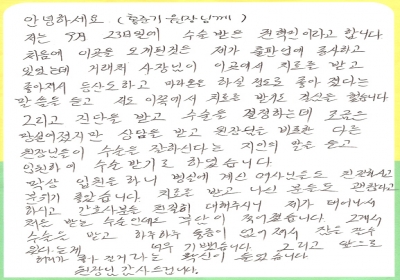 안녕하세요 (원장님께)
저는 9月 23일에 수술 받은 이라고 합니다
처음에 이곳을 오게된것은 제가 출판업에 종사하고
있었는데 거래처 사장님이 이곳에서 치료를 받고
좋아져서 등산도하고 마라톤은 하실 정도로 좋아 졌다는
말씀을 듣고 저도 이곳에서 치료를 받기로 결심은 했습니다
그리고 진단을 받고 수술을 결정하는데 조금은
망설여졌지만 상담을 받고 원장님을 비롯한 다른
원장님들이 수술은 잘하신다는 지인의 말을 듣고
입원하여 수술 받기로 하였습니다
막상 입원을 하니 병실에 계신 여사님들도 친절하시고
분위기 좋았습니다 치료를 받고 나신 분들도 괜찮다고
하시고 간호사분들 친절히 대해주시니 제가 태어나서
처음 받는 수술인데도 부담이 적어졌습니다 2개의
수술을 받고 하루하루 통증이 없어져서 잠을 잘수
있다는게 너무 기뻤습니다 그리고 앞으로
허리가 좋아 진거라는 확신이 들었습니다
원장님 감사드립니다.